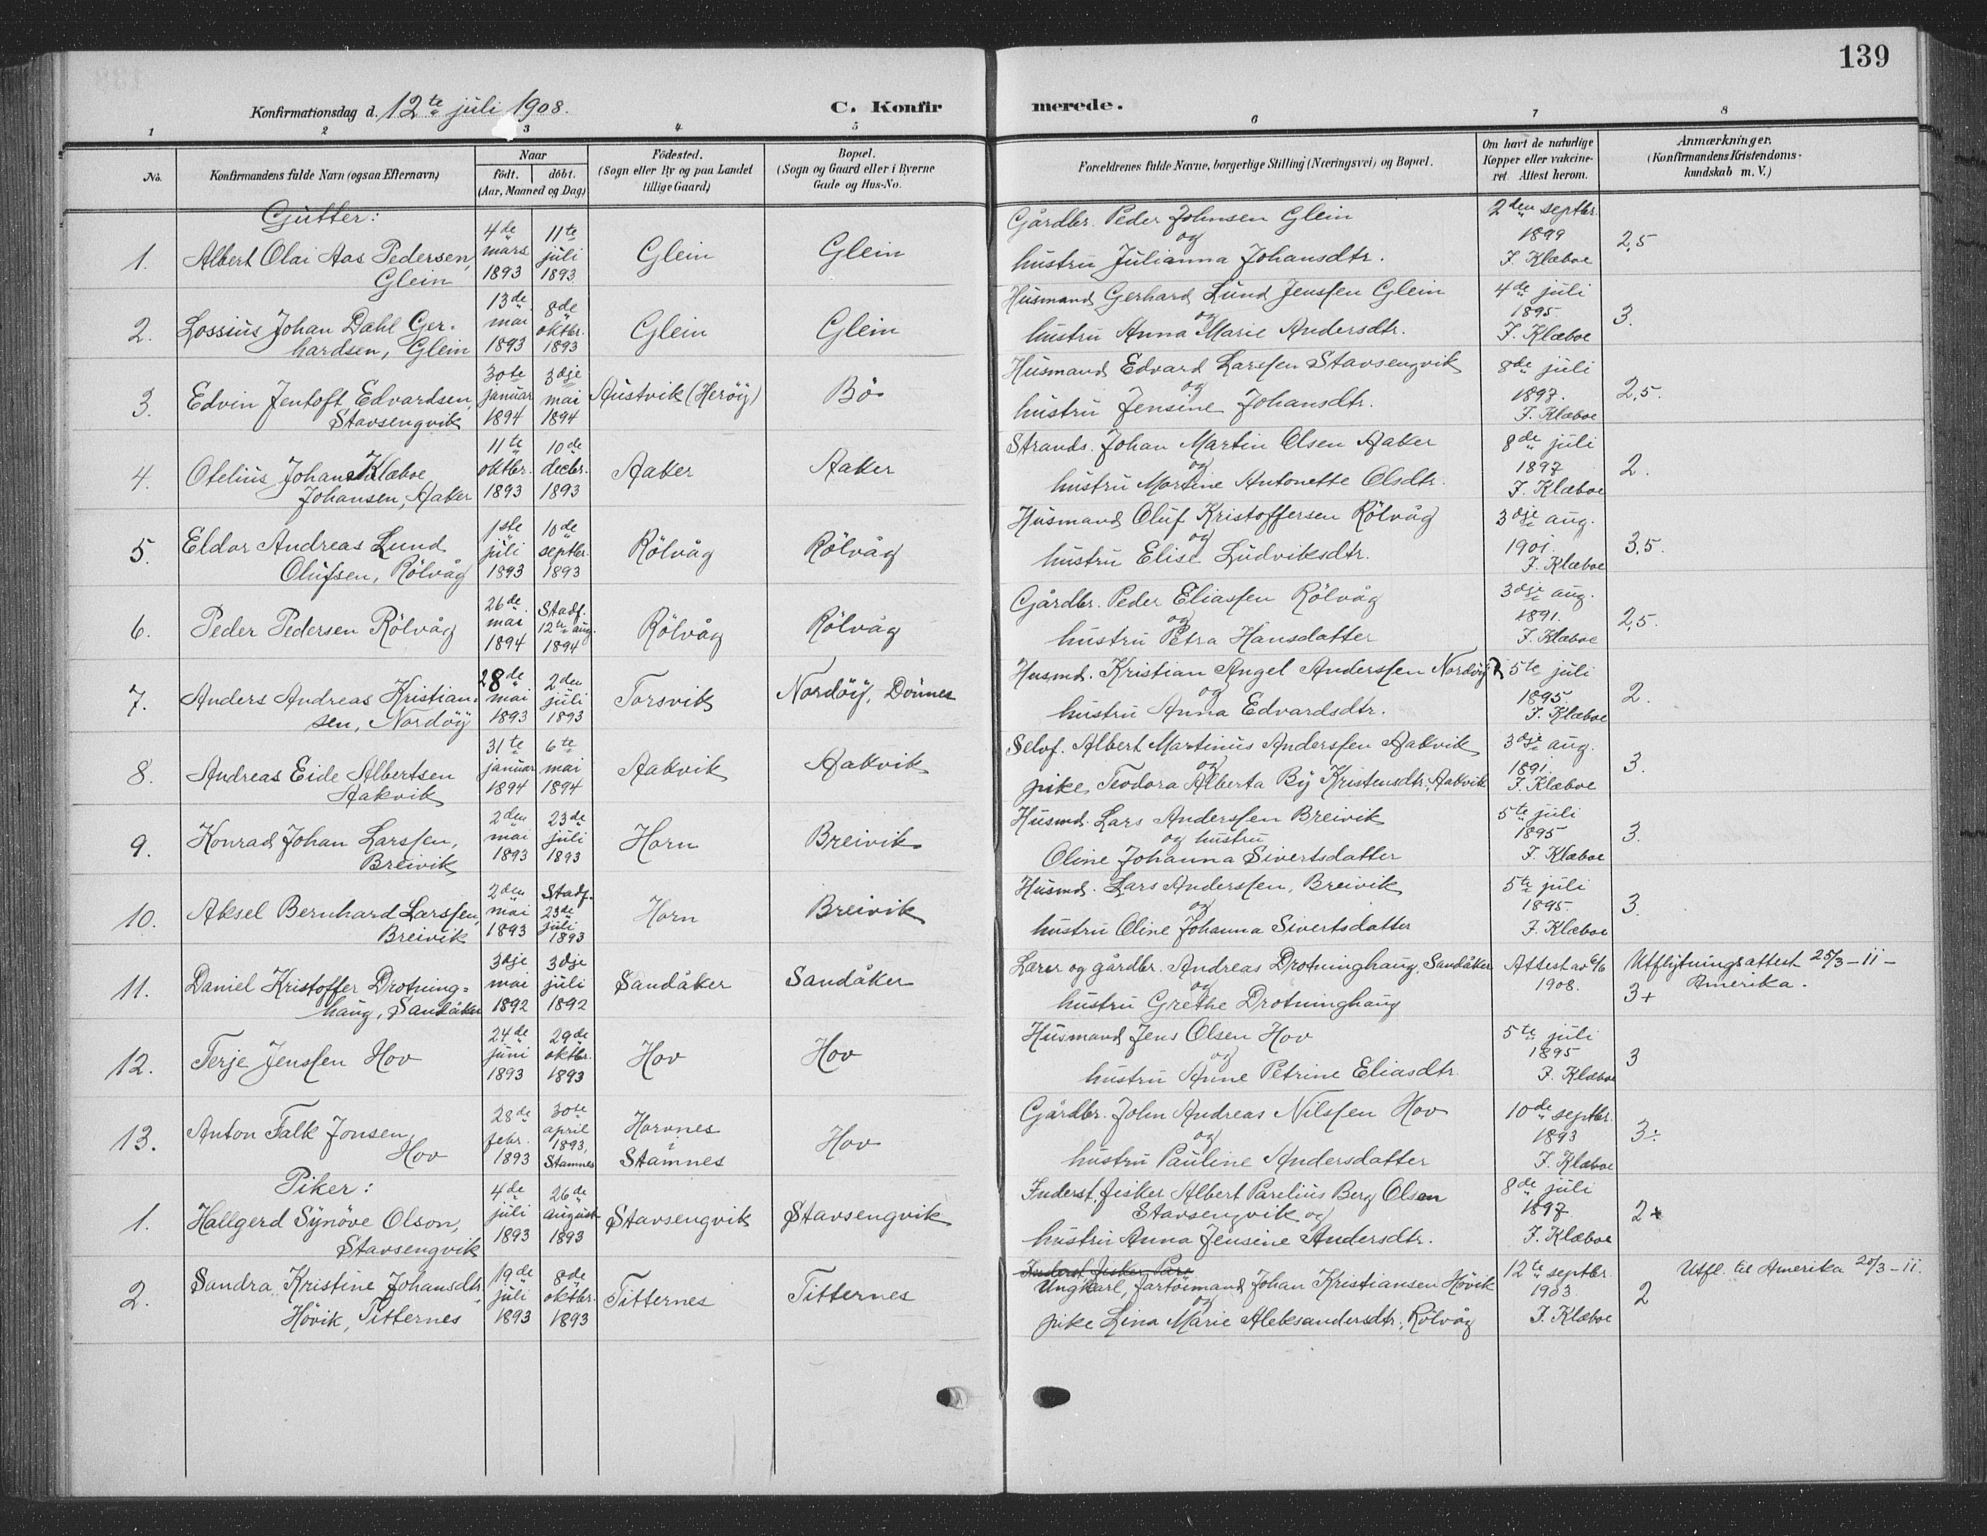 139
Konfirmationsdag d. 12te juli 1908.
C. Konfirmerede.
1 2 3 4 5 6 7 8
No.
Konfirmandens fulde Navn (ogsaa Efternavn)
Naar
født. døbt.
(Aar, Maaned og Dag)
Fødested.
(Sogn eller By og paa Landet
tillige Gaard)
Bopæl.
(Sogn og Gaard eller i Byerne
Gade og Hus-No.
Forældrenes fulde Navne, borgerlige Stilling (Næringsvei) og Bopæl.
Om havt de naturlige
Kopper eller vakcine-
ret. Attest herom.
Anmærkninger.
(Konfirmandens Kristendoms-
kundskab m. V.)
Gutter:
1. Albert Olai Aas Pedersen, Glein
4de mars 1893
11te juli 1893
Glein
Glein
Gårdbr. Peder Johnsen Glein
og
hustru Julianna Johansdtr.
2den septbr. 1899 F. Klæboe
2,5
2. Lossius Johan Dahl Ger-
hardsen, Glein
13de mai 1893
8de oktbr. 1893
Glein
Glein
Husmand Gerhard Lund Jenssen Glein
og
hustru Anna Marie Andersdtr.
4de juli 1895 F. Klæboe
3.
3. Edvin Jentoft Edvardsen,
Stavsengvik
30te januar 1894
3dje mai 1894
Austvik (Herøy)
Bø
Husmand Edvard Larssen Stavsengvik
og
hustru Jensine Johansdtr.
8de juli 1897. F. Klæboe
2,5.
4. Otelius Johan Klæboe
Johansen, Aaker
11te oktbr. 1893
10de decbr. 1893
Aaker
Aaker
Strands. Johan Martin Olsen Aaker
og
hustru Martine Antonette Olsdtr.
8de juli 1897 F. Klæboe
2.
5. Eldor Andreas Lund
Olufsen, Rölvåg
1ste juli 1893
10de septbr. 1893
Rölvåg
Rölvåg
Husmand Oluf Kristoffersen Rölvåg
og
hustru Elise Ludviksdtr.
3dje aug. 1901. F. Klæboe
3,5.
6. Peder Pedersen Rölvåg
26de mai 1894
Stadf. 12te aug. 1894
Rölvåg
Rölvåg
Gårdbr. Peder Eliassen Rölvåg
og
hustru Petra Hansdatter
3dje aug. 1891. F. Klæboe
2,5.
7. Anders Andreas Kristian-
sen, Nordöy
28de mai 1893
2den juli 1893
Torsvik
Nordöy, Dönnes
Husmd. Kristian Angel Anderssen Nordöy
og
hustru Anna Edvardsdtr.
5te juli 1895. F. Klæboe
2.
8. Andreas Eide Albertsen
Aakvik
31te januar 1894
6te mai 1894
Aakvik
Aakvik
Selvf. Albert Martinus Anderssen Aakvik
og
pike Teodora Alberta By Kristensdtr, Aakvik
3dje aug. 1891. F. Klæboe
3.
9. Konrad Johan Larssen,
Breivik
2den mai 1893
23de juli 1893
Horn
Breivik
Husmd. Lars Anderssen Breivik
og hustru
Oline Johanna Sivertsdatter
5te juli 1895 F. Klæboe
3.
10. Aksel Bernhard Larssen,
Breivik
2den mai 1893
Stadf. 23de juli 1893
Horn
Breivik
Husmd. Lars Anderssen, Breivik
og
hustru Oline Johanna Sivertsdatter
5te juli 1895 F. Klæboe
3.
11. Daniel Kristoffer Drotning=
haug, Sandåker
3dje mai 1892
3dje juli 1892
Sandåker
Sandåker
Lærer og gårdbr. Andreas Drotninghaug, Sandåker
og
hustru Grethe Drotninghaug
Attest av 6/6 1908.
Utflytningsattest 25/3-11-
Amerika.
3+
12. Terje Jenssen Hov
24de juni 1893
29de oktbr. 1893
Hov
Hov
Husmand Jens Olsen Hov
og
hustru Anne Petrine Eliasdtr.
5te juli 1895 F. Klæboe
3
13. Anton Falk Jonsen,
Hov
28de febr. 1893
30te april 1893, Stamnes
Horvnes
i
Stamnes
Hov
Gårdbr. John Andreas Nilssen Hov
og
hustru Pauline Andersdatter
10de septbr. 1893 F. Klæboe
3:
Piker:
1. Hallgerd Synöve Olson,
Stavsengvik
4de juli 1893
26de august 1893
Stavsengvik
Stavsengvik
Inderst, fisker Albert Parelius Berg Olsen
Stavsengvik og
hustru Anna Jensine Andersdtr.
8de juli 1897 F. Klæboe
2+
2. Sandra Kristine Johansdtr.
Hövik, Titternes
19de juli 1893
8de oktbr. 1893
Titternes
Titternes
Inderst, fisker Pare
Ungkarl, fartöimand Johan Kristiansen Hövik
og
pike Lina Marie Aleksandersdtr, Rölvåg
12te septbr. 1903 F. Klæboe
Utfl. til Amerika 20/3-11.
2